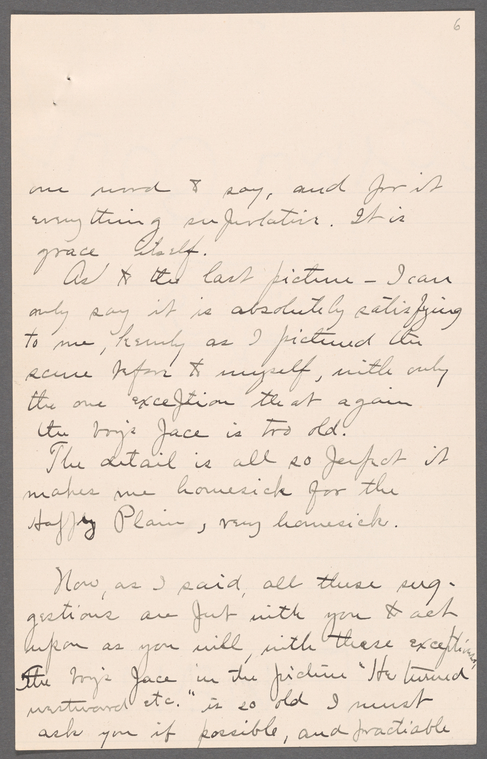 6
one word to say, and for it
everything superlative. It is
grace itself.
As to the last picture – I can
only say it is absolutely satisfying
to me, as I pictured the
scene before to myself, with only
the one exception that again
the boy's face is too old.
The detail is all so perfect it
makes me homesick for the
Happy Plain, very homesick.
Now, as I said, all these sug-
gestions are just with you to act
upon as you will, with these exceptions,
The boy's face in the picture "He turned
westward etc." is so old I must
ask you if possible, and practiable